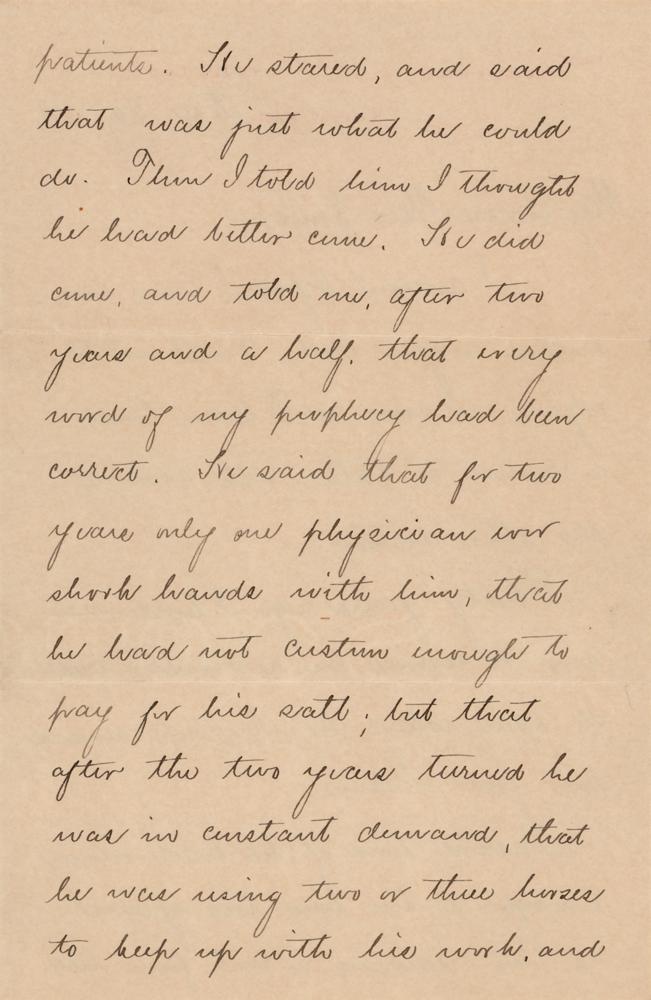 patients. He stared, and said
that was just what he could
do. Then I told him I thought
he had better come. He did
come, and told me, after two
years and a half, that every
word of my prophecy had been
correct. He said that for two
years only one physician ever
shook hands with him, that
he had not custom enough to
pay for his salt; but that
after the two years turned he
was in constant demand, that
he was using two or three horses
to keep up with his work, and